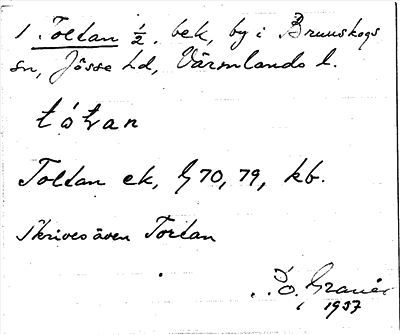 1 Toltan 1/2, bek, by i Brunskogs
sn, Jösse hd, Värmlands l.
tótan
Toltan ek, G70, 79, kb.
Skrives även Tortan
Ö. Granér
1937